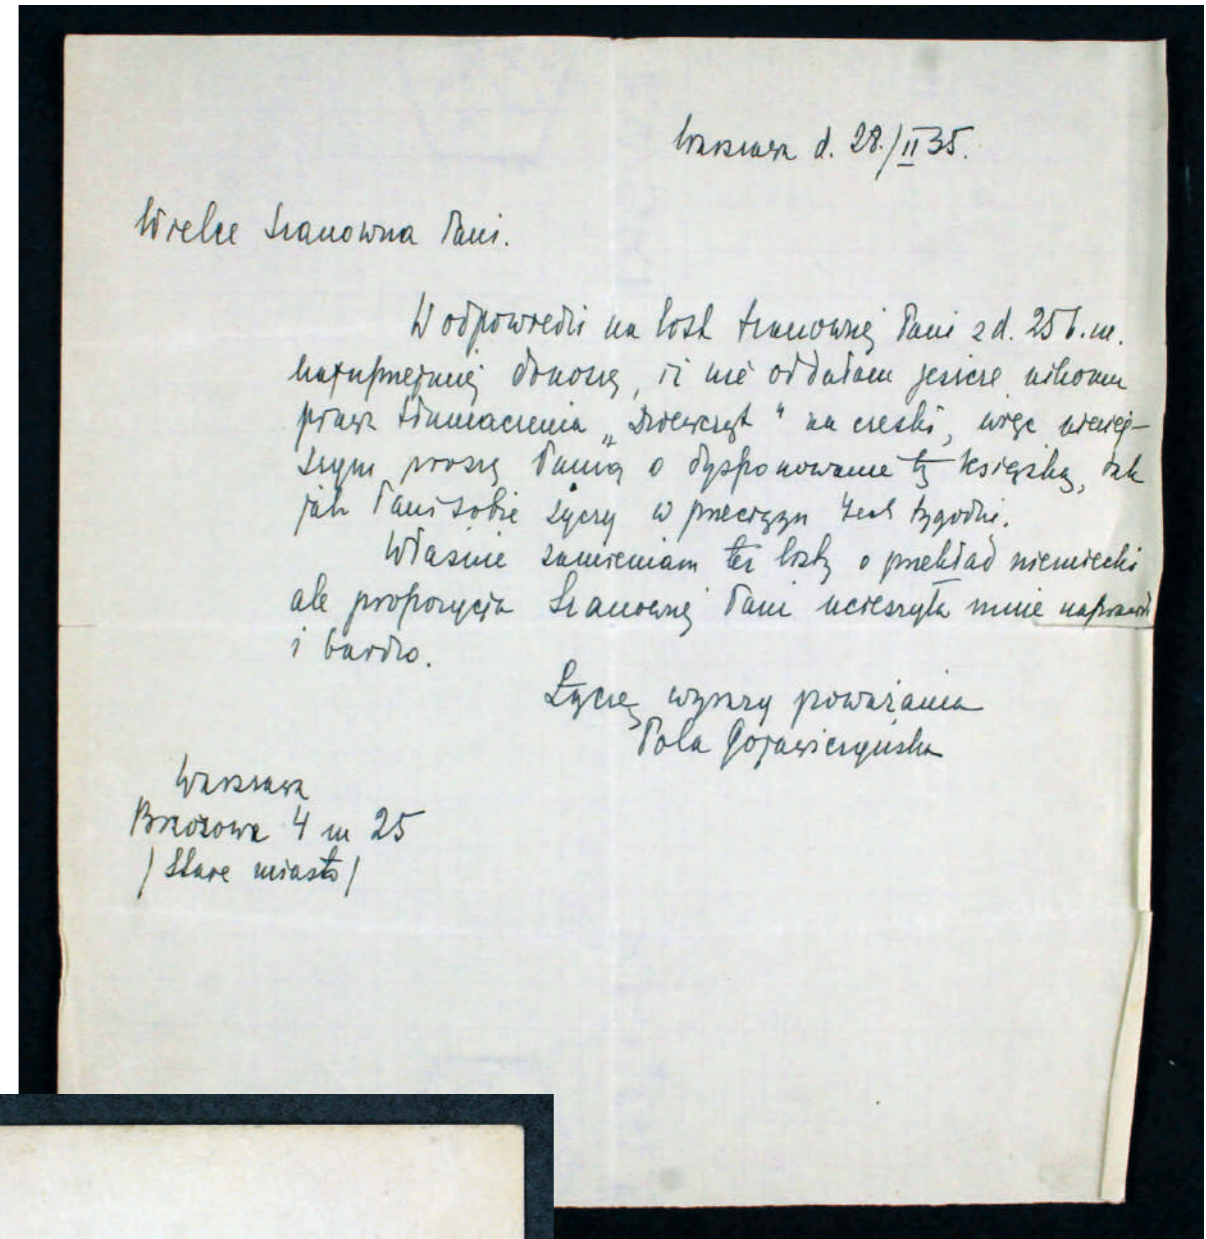 Warszawa d. 28./II 35.
Wielce Szanowna Pani.
W odpowiedzi na list Szanownej Pani z d. 25 b.m.
najuprzejmiej donoszę, iż nie oddałam jeszcze nikomu
prawa tłumaczenia „Dziewcząt" na czeski, więc niniej-
szym proszę Panią o dysponowanie tą książką, tak
jak Pani sobie życzy w przeciągu 4ech tygodni.
Właśnie zamieniam też listy o przekład niemiecki
ale propozycja Szanownej Pani ucieszyła mnie naprawdę
i bardzo.
Łączę wyrazy poważania
Pola Gojawiczyńska
Warszawa
Brzozowa 4 m 25
/Stare miasto/